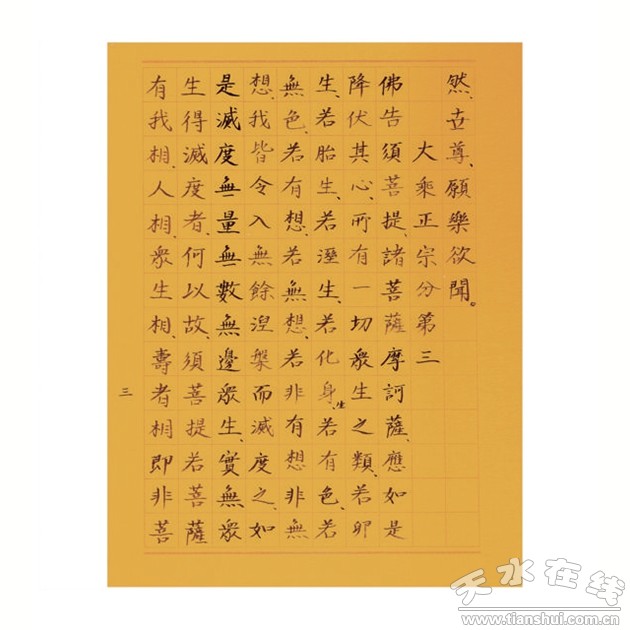 然、世尊、願樂欲聞。
大乘正宗分第三
佛告須菩提、諸菩薩摩訶薩、應如是
降伏其心、所有一切眾生之類、若卵
生、若胎生、若溼生、若化身、生若有色、若
無色、若有想、若無想、若非有想非無
想、我皆令入無餘涅槃而滅度之、如
是滅度無量無數無邊眾生、實無眾
生得滅度者、何以故、須菩提若菩薩
有我相、人相、眾生相、壽者相即非菩
三
天水在线
www.tianshui.com.cn